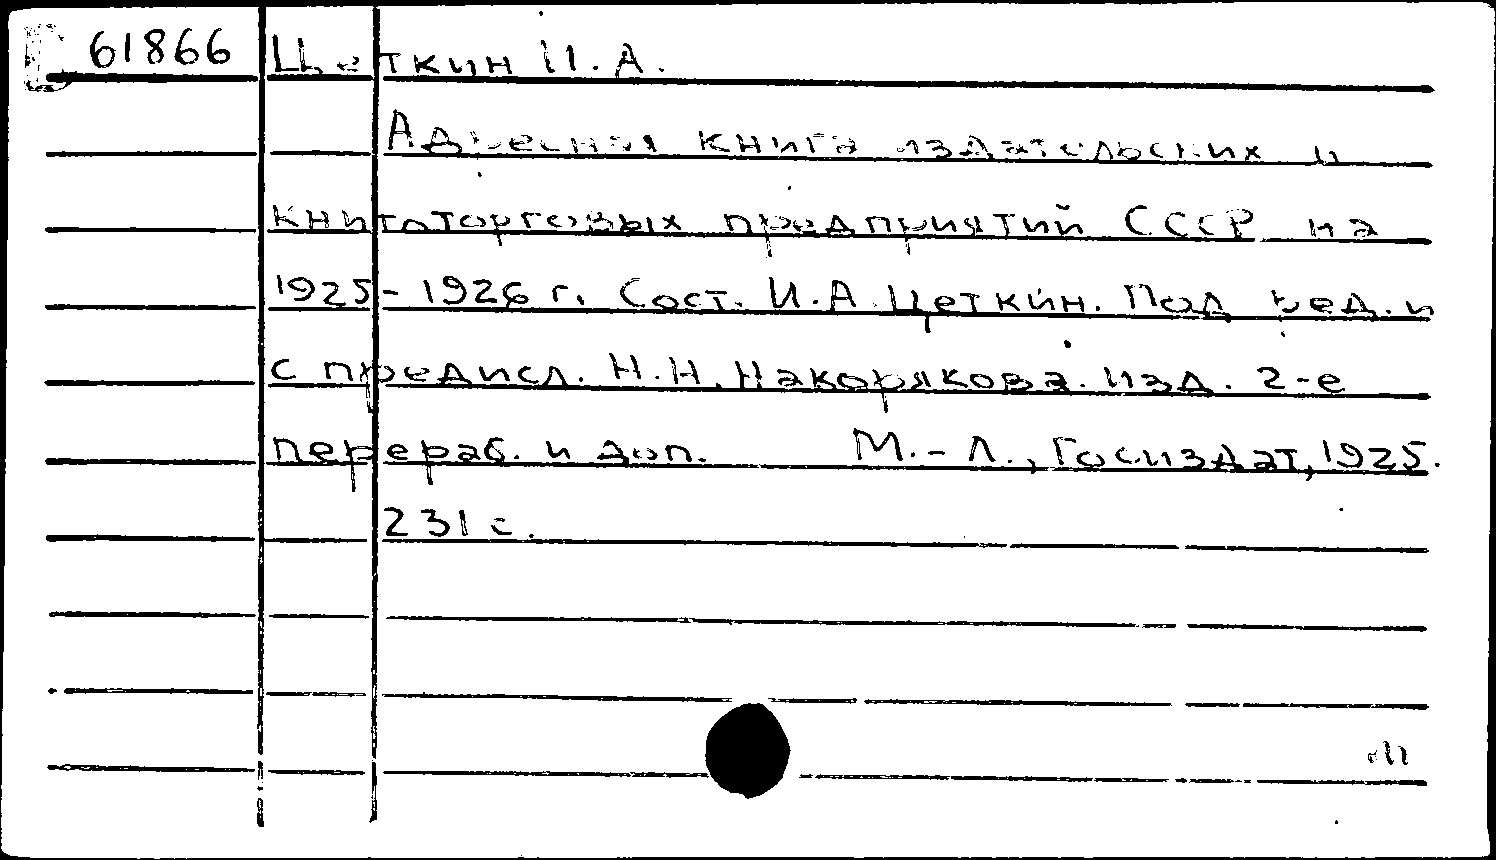 61866 Цеткин И. А.
Адресная книга издательских и
книготорговых предприятий СССР на
1925 - 1926 г. Сост. И.А. Цеткин. Под ред. и
с предисл. Н.Н. Накорякова. Изд. 2-е
перераб. и доп. М.-Л., Госиздат, 1925.
231 с.